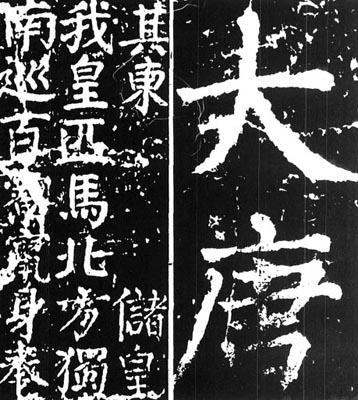 大唐
其東 儲皇
我皇匹馬北方獨
南巡百寮竄身奉